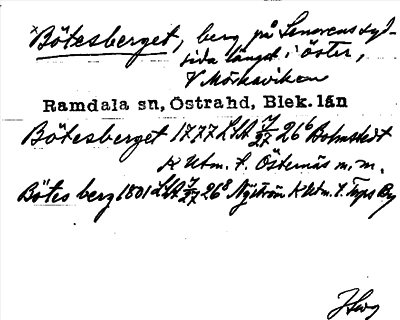 x Bötesberget, berg på Senorens syd-
sida längst i öster,
V Mörkaviken
Ramdala sn, Östrahd, Blek. län
Bötesberget 1777 LSA 7/27 26⁶ Bolmstedt
K Utm. t. Östernäs m.m.
Bötes berg 1801 LSA 7/27 26⁸ Nyström K Utm. t. Torps By